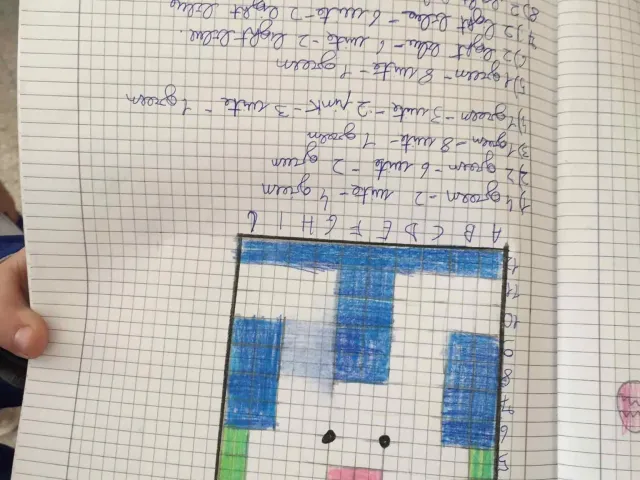 5
6
7
8
9
10
11
12
A B C D E F G H I L
1) 4 green - 2 wite - 4 green
2) 2 green - 6 wite - 2 green
3) 1 green - 8 wite - 1 green
4) 1 green - 3 wite - 2 pink - 3 wite - 1 green
5) 1 green - 8 wite - 1 green
6) 2 light blu - 6 wite - 2 light blue.
7) 2 light blue - 6 wite - 2 light blue
8) 2